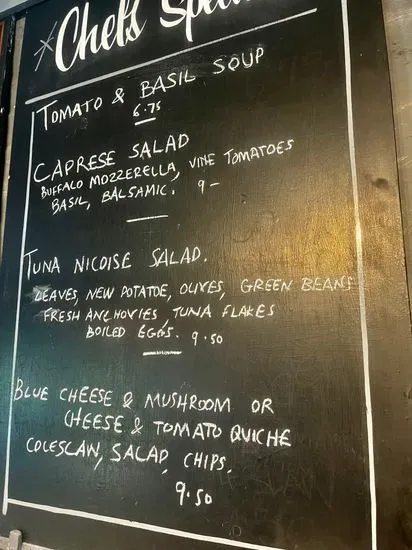 * Chef's Spe
TOMATO & BASIL SOUP
6.75
CAPRESE SALAD
BUFFALO MOZZERELLA, VINE TOMATOES
BASIL, BALSAMIC. 9-
TUNA NICOISE SALAD.
LEAVES, NEW POTATOE, OLIVES, GREEN BEANS
FRESH ANCHOVIES, TUNA FLAKES
BOILED EGGS. 9.50
BLUE CHEESE & MUSHROOM OR
CHEESE & TOMATO QUICHE
COLESLAW, SALAD, CHIPS.
9.50